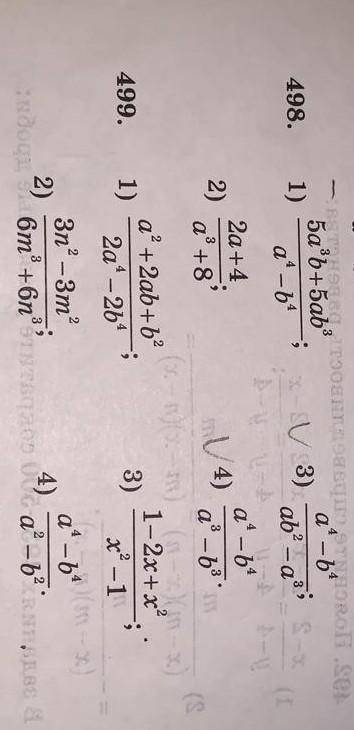 498. 1) \frac{5a³b+5ab³}{a⁴−b⁴}; 3) \frac{a⁴−b⁴}{ab²−a³};
2) \frac{2a+4}{a³+8}; 4) \frac{a⁴−b⁴}{a³−b³}.
499. 1) \frac{a²+2ab+b²}{2a⁴−2b⁴}; 3) \frac{1−2x+x²}{x²−1};
2) \frac{3n²−3m²}{6m³+6n³}; 4) \frac{a⁴−b⁴}{a²−b²}.